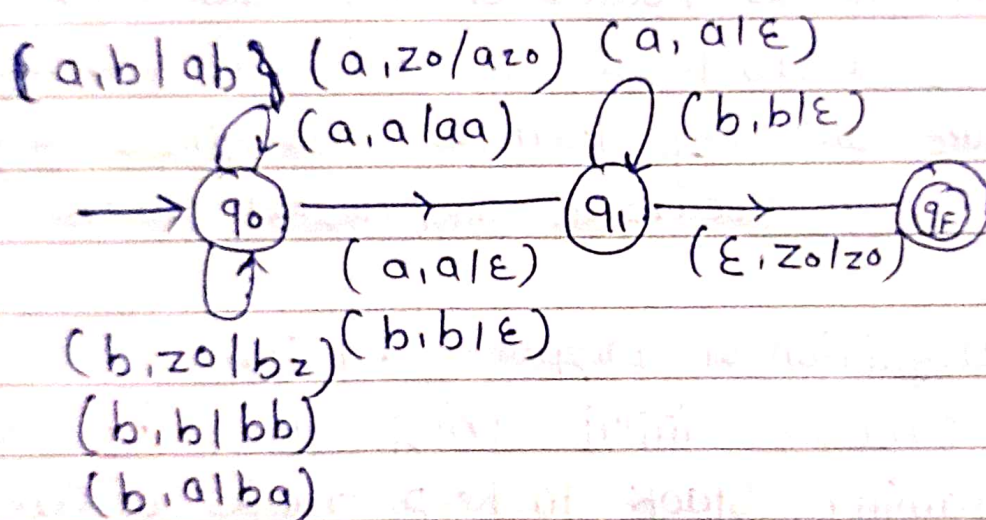 {a,b/ab} (a,z0/az0) (a,a/ε)
(a,a/aa) (b,b/ε)
q0 q1 qF
(a,a/ε) (ε,z0/z0)
(b,z0/bz) (b,b/ε)
(b,b/bb)
(b,a/ba)